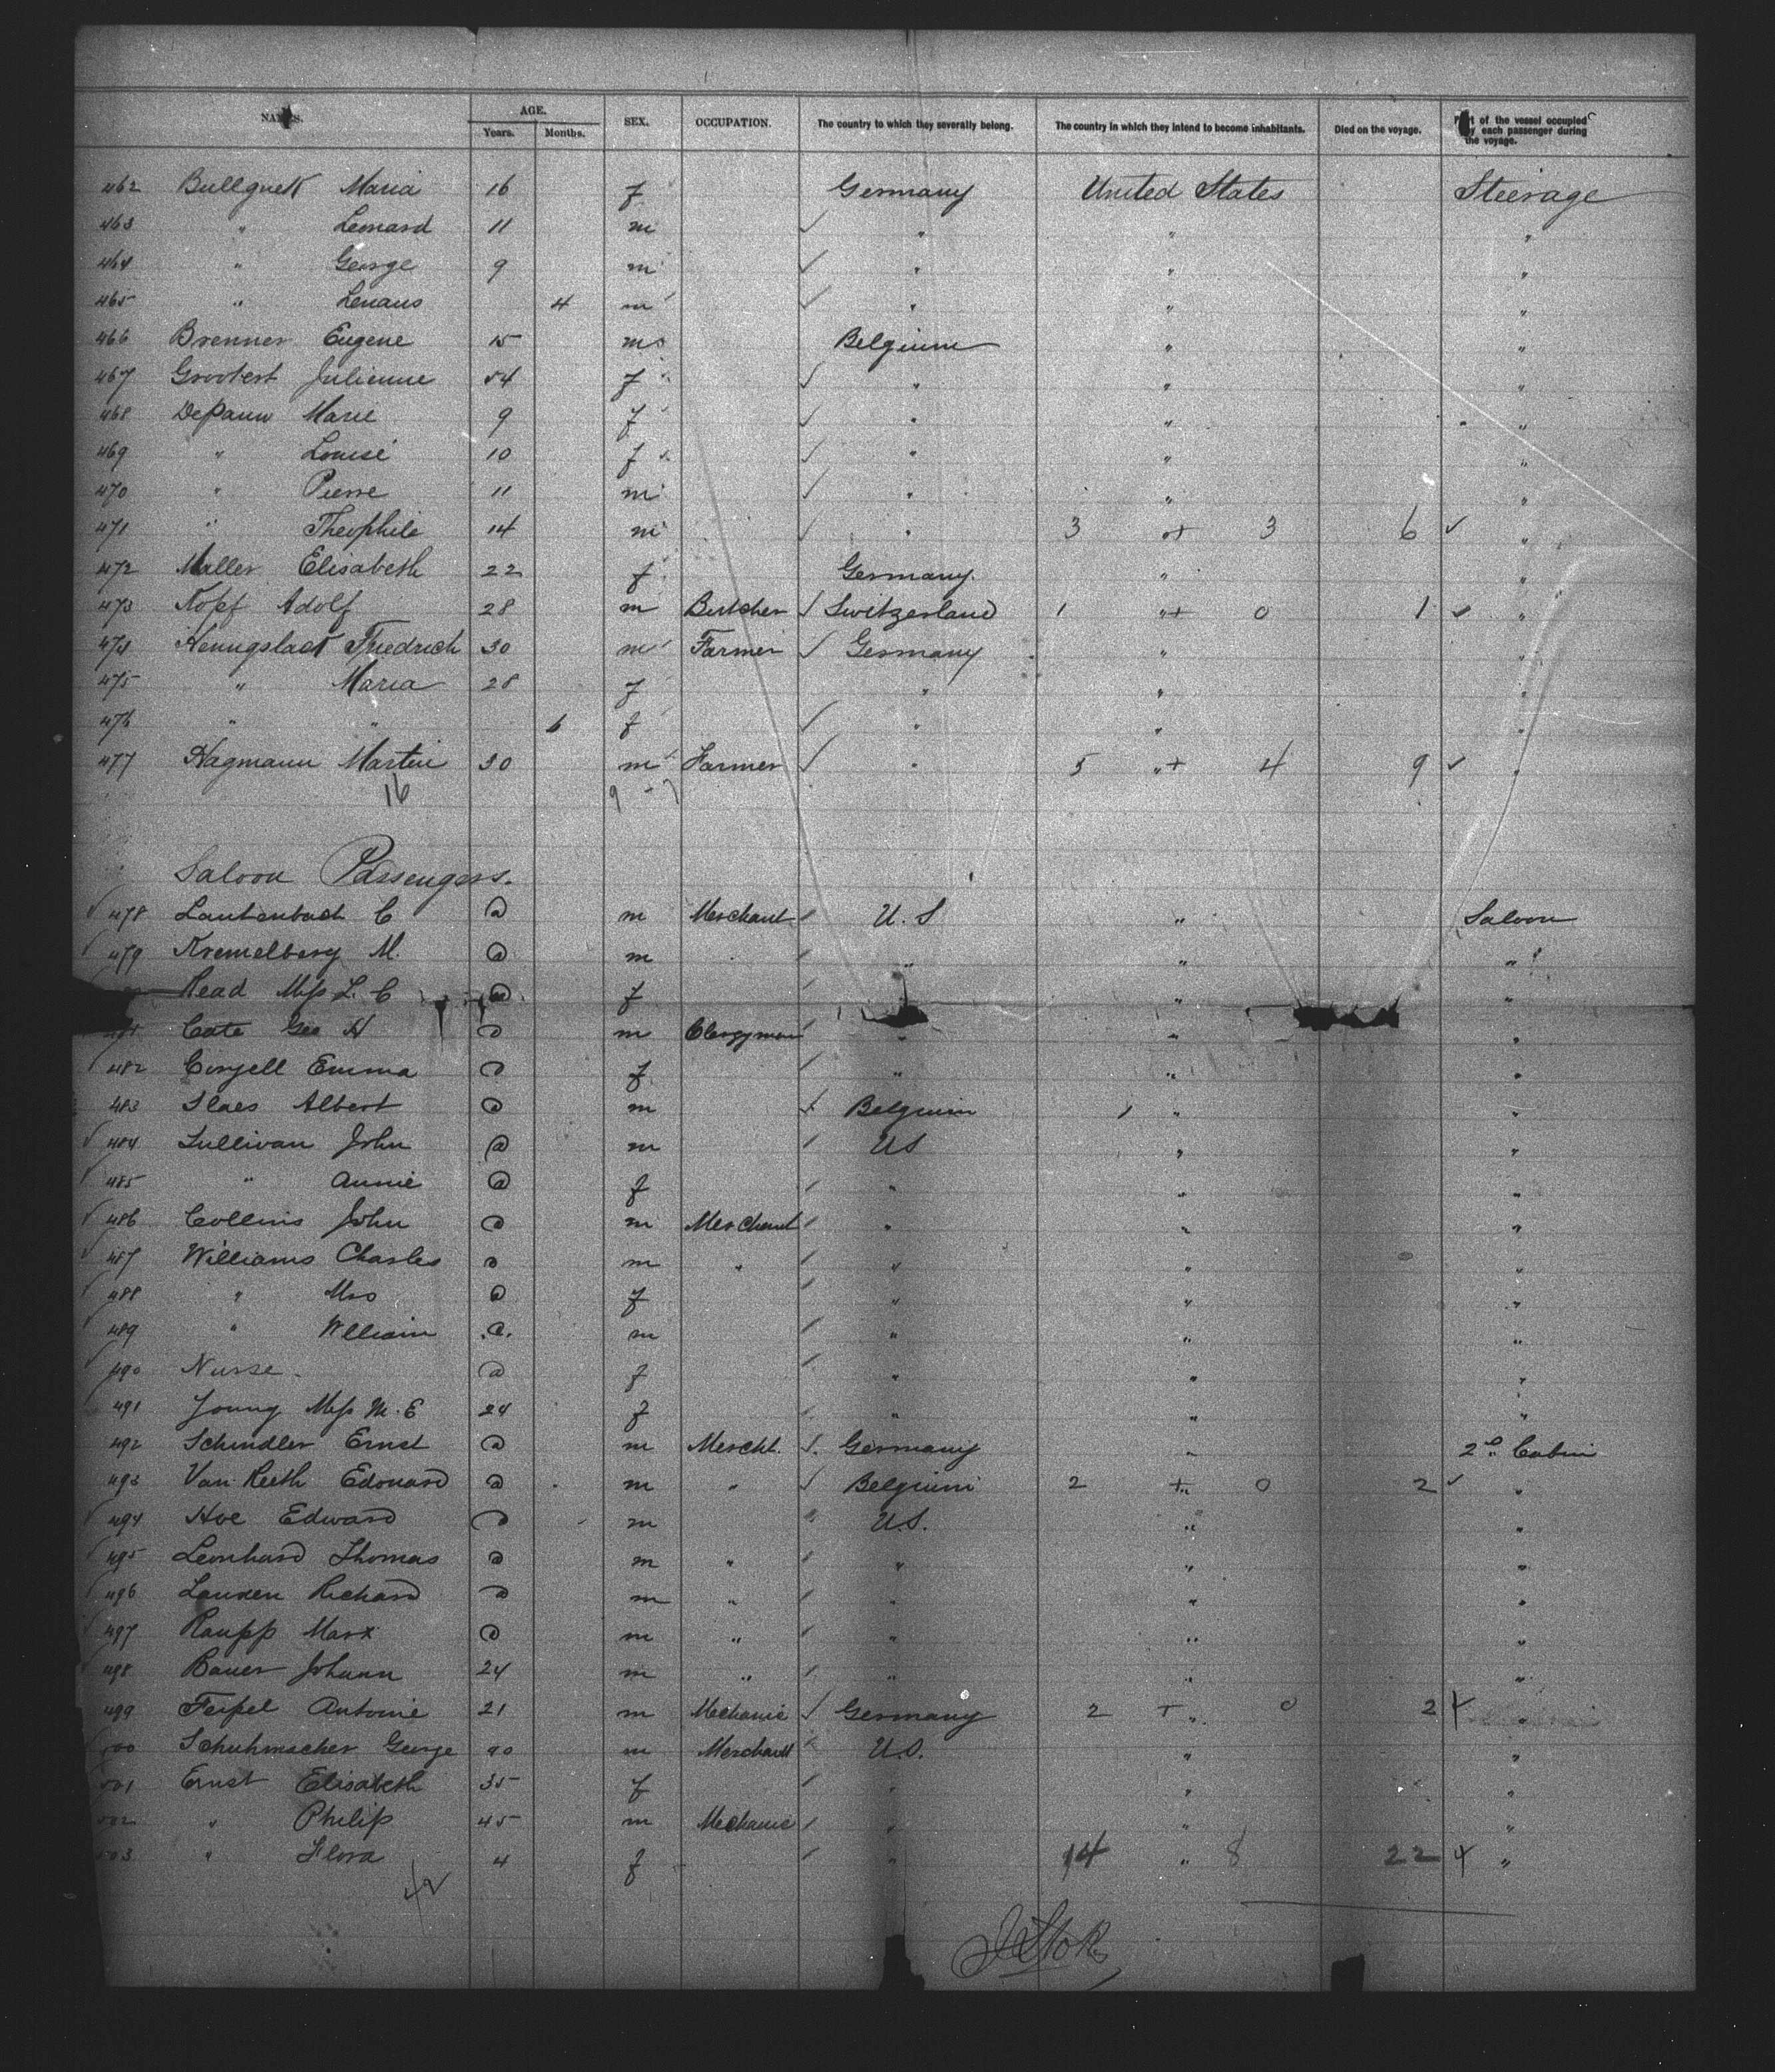 NAMES. AGE. Years. Months. SEX. OCCUPATION. The country to which they severally belong. The country in which they intend to become inhabitants. Died on the voyage. Part of the vessel occupied by each passenger during the voyage.
462 Maria 16 f Germany United States Steerage
463 " Leonard 11 m " " "
464 " George 9 m " " "
465 " 4 m " " "
466 Brenner Eugene 15 m Belgium " "
467 Grootert Julienne 54 f " " "
468 DePauw Marie 9 f " " "
469 " Louise 10 f " " "
470 " Pierre 11 m " " "
471 " Theophile 14 m " 3 + 3 6 "
472 Muller Elisabeth 22 f Germany " "
473 Kopf Adolf 28 m Butcher Switzerland 1 "+ 0 1 "
474 Friedrich 30 m Farmer Germany " "
475 " Maria 28 f " " "
476 " " 6 f " " "
477 Hagmann Martin 30 m Farmer " 5 "+ 4 9 "
16 9 - 7
Saloon Passengers.
478 Lautenbach C a m Merchant U.S " Saloon
479 Kremelberg M. a m " " "
Read Miss L. C a f " " "
481 Cate Geo H a m Clergyman " " "
482 Coryell Emma a f " " "
483 Slaes Albert a m Belgium " "
484 Sullivan John a m US " "
485 " Annie a f " " "
486 Collins John a m Merchant " " "
487 Williams Charles a m " " " "
488 " Mrs a f " " "
489 " William a. m " " "
490 Nurse a f " " "
491 Young Miss M. E 24 f " " "
492 Schindler Ernst a m Mercht. Germany " 2d Cabin
493 Van Reeth Edouard a m " Belgium 2 +" 0 2 "
494 Hoe Edward a m U.S. " "
495 Leonhard Thomas a m " " " "
496 Richard a m " " " "
497 Raupp Marx a m " " " "
498 Bauer Johann 24 m " " " "
499 Feipel Antoine 21 m Mechanic Germany 2 + " 0 2 "
500 Schuhmacher George 40 m Merchant U.S. " "
501 Ernst Elisabeth 35 f " " "
502 " Philip 45 m Mechanic " " "
503 " Flora 4 f " 14 " 8 22 "